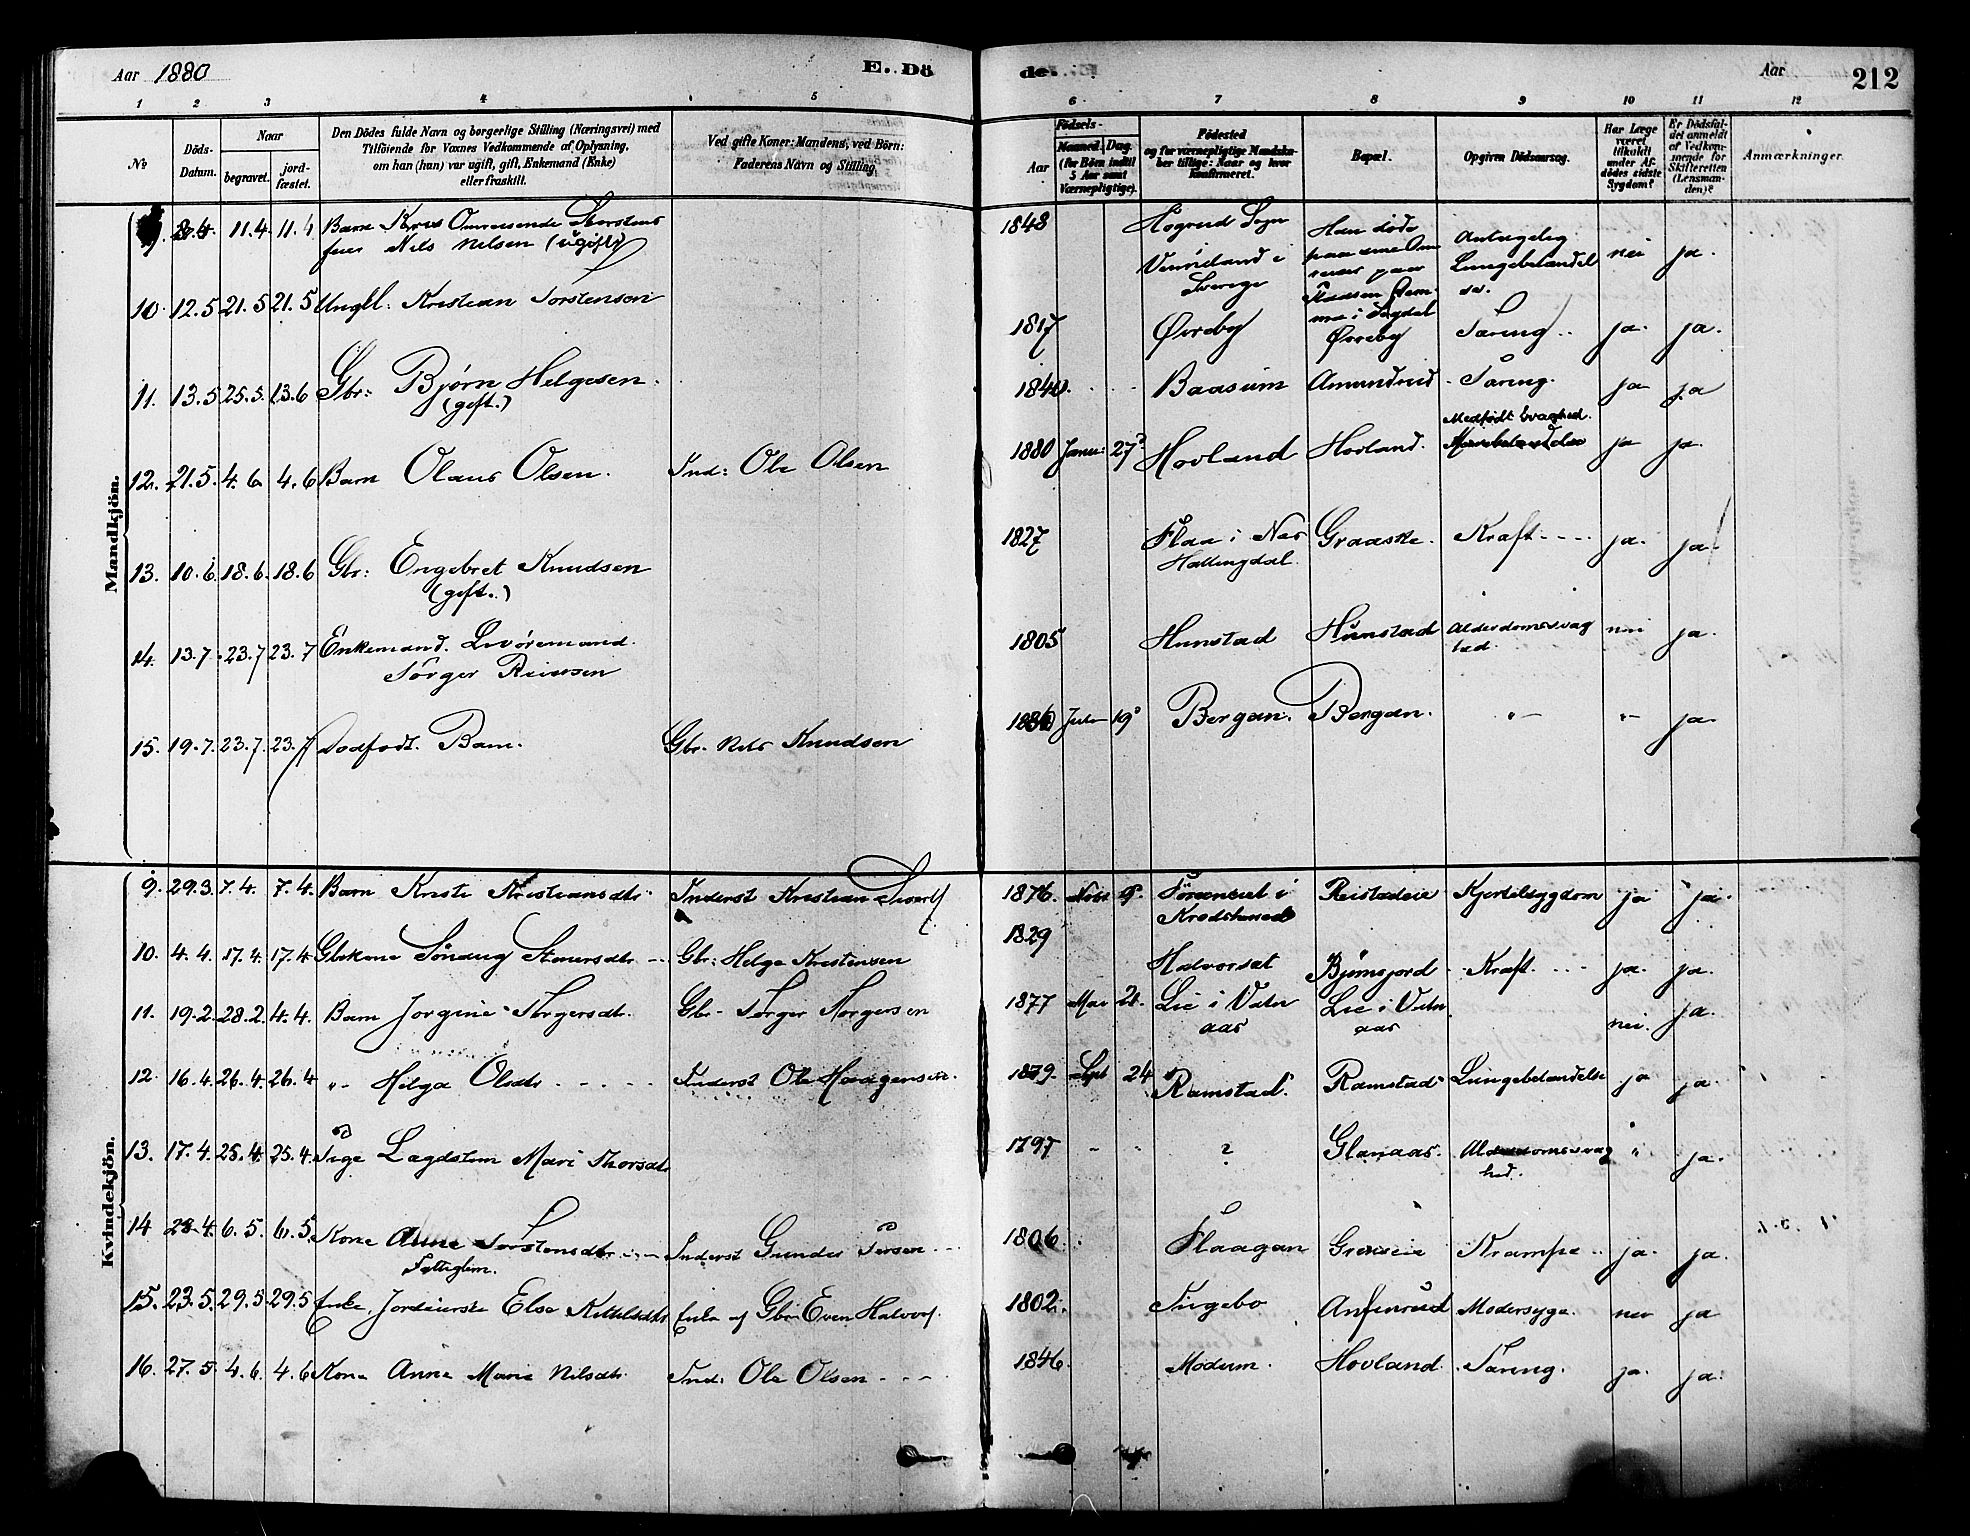 Aar 1880
E. Dö
de.
Aar
212
1 2 3 4 5 6 7 8 9 10 11 12
No
Döds-Datum.
Naar
begravet.
jord-fæstet.
Den Dödes fulde Navn og borgerlige Stilling (Næringsvei) med
Tilföiende for Voxnes Vedkommende af Oplysning,
om han (hun) var ugift, gift, Enkemand (Enke)
eller fraskilt.
Ved gifte Koner: Mandens, ved Börn:
Faderens Navn og Stilling.
Födsels-
Aar
Maaned. Dag.
(for Börn indtil
5 Aar samt
Værnepligtige).
Födested
og for værnepligtige Mandska-
ber tillige: Naar og hvor
konfirmeret.
Bopæl.
Opgiven Dödsaarsag.
Har Læge
været
tilkaldt
under Af-
dödes sidste
Sygdom?
Er Dödsfal-
det anmeldt
af Vedkom-
mende for
Skifteretten
(Lensman-
den)?
Anmærkninger.
Mandkjön.
11.4 11.4 Omreisende
Nils Nilsen (ugift) 1848 Sogn i Sverige Lungebetændelse nei ja.
10 12.5 21.5 21.5 Ungkl. Kristian Torstensen 1817 Øvreby Øvreby Tæring ja. ja.
11. 13.5 25.5. 13.6 Gbr: Bjørn Helgesen.
(gift.) 1840. Baasum Amundrud Tæring. ja ja
12. 21.5. 4.6 4.6 Barn Olaus Olsen. Ind: Ole Olsen 1880 Januar 27 Hovland Hovland. Medfødt Svaghed. ja ja.
13. 10.6. 18.6. 18.6 Gbr: Engebret Knudsen
(gift.) 1827 Flaa i Nes
Hallingdal. Graaske. Kraft ja. ja.
14. 13.7. 23.7 23.7 Enkemand. Livøremand.
Torger Reiersen 1805 Hunstad Hunstad Alderdomssvag
hed. nei ja.
15. 19.7. 23.7. 23.7 Dødfødt. Barn. Gbr. Nils Knudsen 1880 Juli 19 Bergan. Bergan. "- "- ja.
Kvindekjön.
9. 29.3. 7.4. 7.4. Barn Kristi Kristiansdtr. Inderst Kristian 1876. Novbr 9. i
Krødsherred Reistadeie Kjertelsygdom ja ja.
10. 4.4. 17.4. 17.4 Gbrkone Steinersdtr Gbr: Helge Kristensen 1829 Halvorset Bjørnsjord Kraft. ja. ja.
11. 19.2. 28.2. 4.4. Barn Jorgine Thorgersdtr. Gbr. Torger Torgersen 1877 Mai 2. Lie i Vatn
aas Lie i Vatn
aas nei. ja.
12. 16.4. 26.4. 26.4. "- Helga Olsdtr Inderst Ole Haagensen. 1879. Sept 24 Ramstad. Ramstad Lungebetændelse ja ja.
13. 17.4. 25.4. 25.4. Pige Lægdslem Mari Thorsdtr 1797 - " ? Glanaas. Alderdomssvag
hed. " ja.
14 28.4. 6.5. 6.5. Kone Anne Torstensdtr
Fattiglem. Inderst Gunder 1806. Flaagan Krampe ja. ja.
15. 23.5. 29.5. 29.5 Enke. Else Kittelsdtr Enke af Gbr. Even Halvors. 1802. Ingebo Anfinrud Modersyge. nei ja
16. 27.5 4.6. 4.6 Kone Anne Marie Nilsdtr. Ind: Ole Olsen 1846. Modum. Hovland. Tæring. ja. ja.